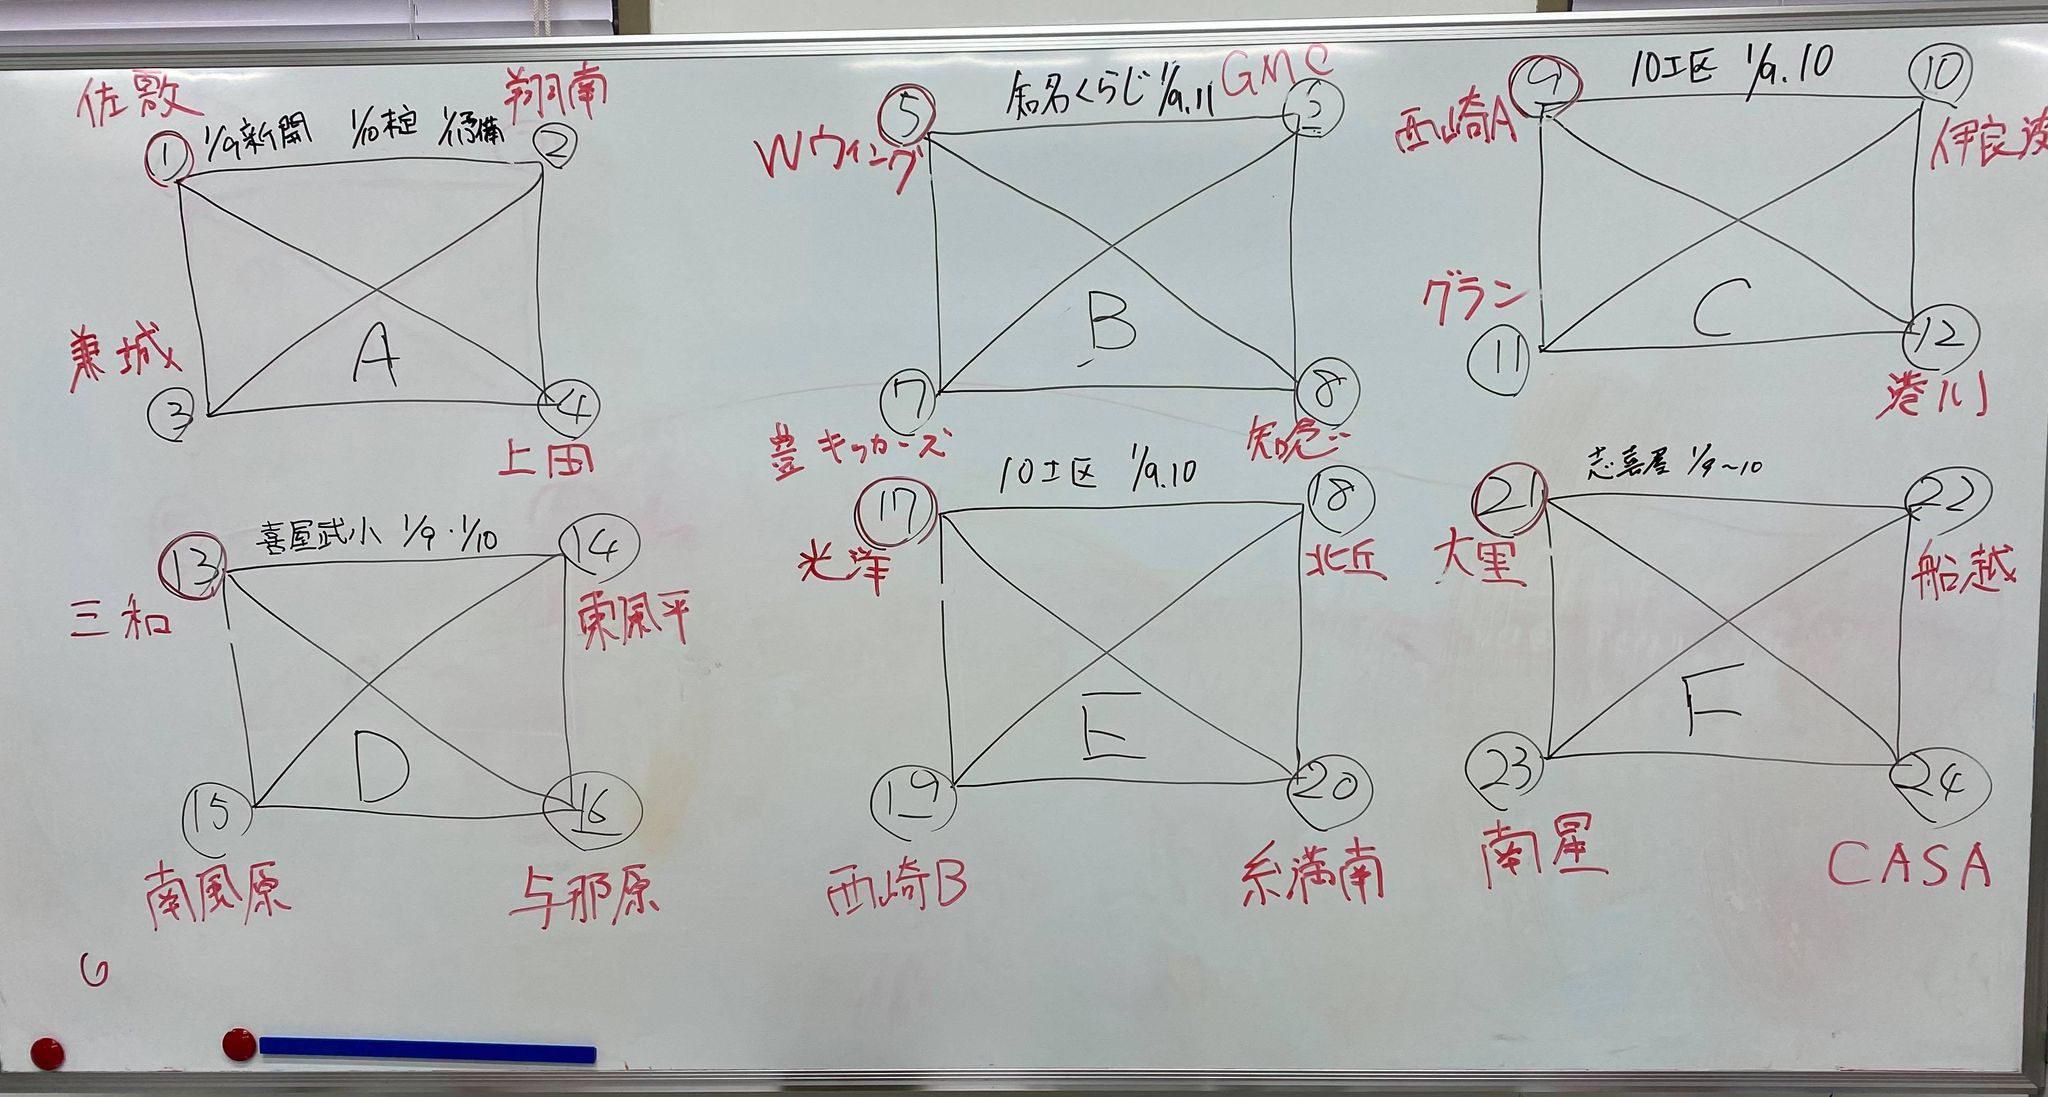 佐敷
翔南
① 1/9新開 1/10未定 1/11予備 ②
兼城
A
③
④
上田
⑤ 知名くらじ 1/9.11 GMC
Wウィング
B
⑦
⑧
豊キッカーズ
知念
⑨ 10工区 1/9.10 ⑩
西崎A
伊良波
グラン
C
⑪
⑫
港川
⑬ 喜屋武小 1/9・1/10 ⑭
三和
東風平
D
⑮
⑯
南風原
与那原
⑰ 10工区 1/9.10 ⑱
光洋
北丘
E
⑲
⑳
西崎B
糸満南
㉑ 志喜屋 1/9~10 ㉒
大里
船越
F
㉓
㉔
南星
CASA